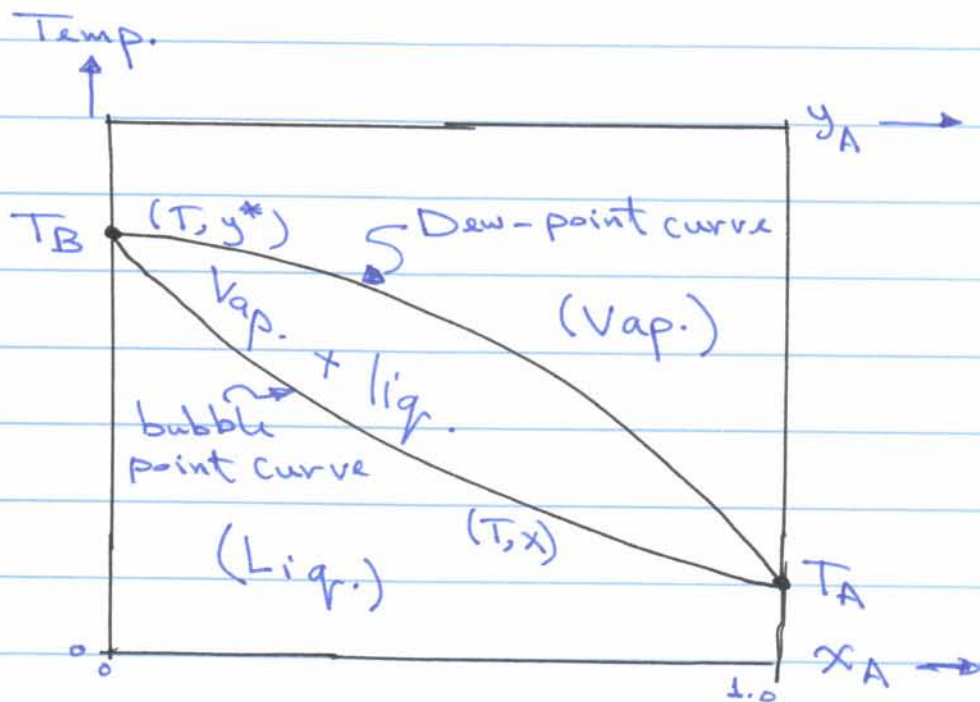 Temp.
y_A
T_B
(T, y*)
Dew-point curve
(Vap.)
Vap. + liq.
bubble
point curve
(T, x)
(Liq.)
T_A
0
0
1.0
x_A